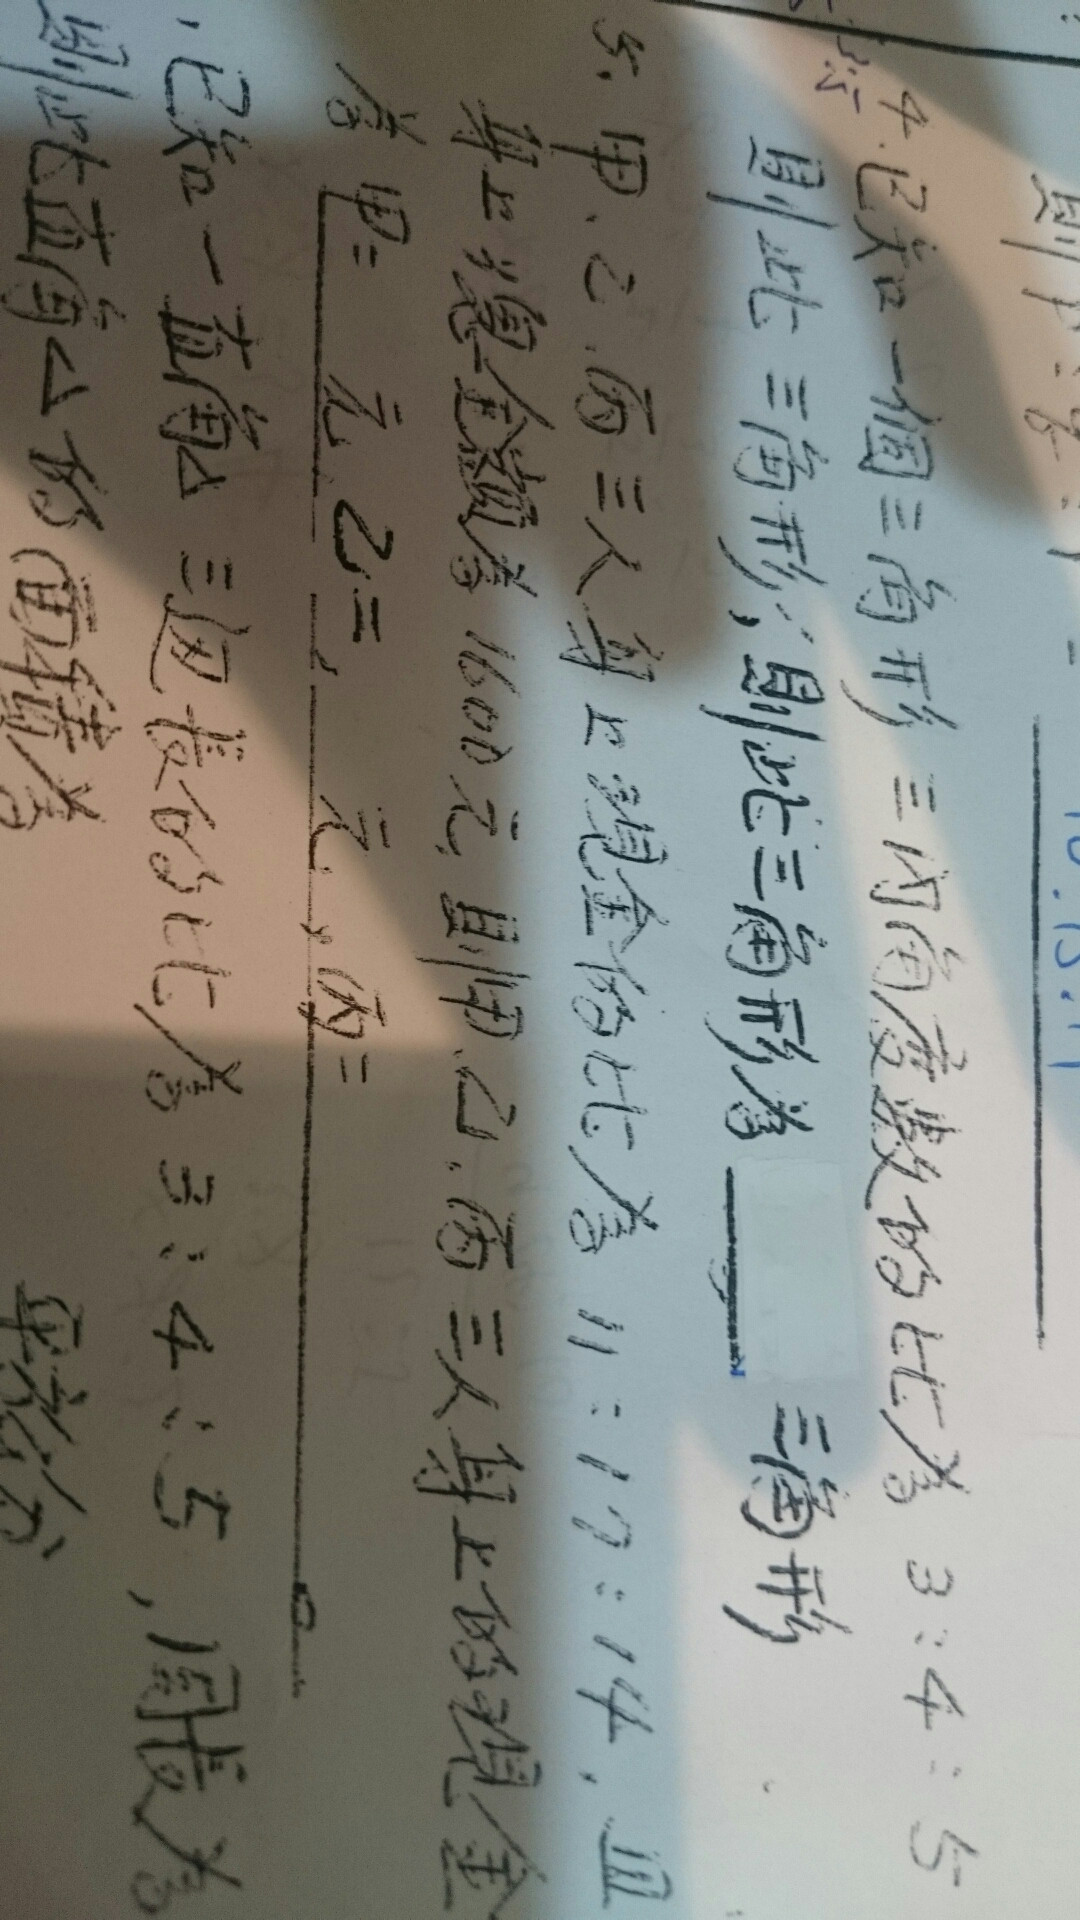 則
10:15:
4.已知一個三角形三內角度數的比為3:4:5
則此三角形,則此三角形為 三角形
5.甲、乙、丙三人身上現金的比為11:17:14,且
身上現金總額為1600元,則甲、乙、丙三人身上的現金
為甲= 元,乙= 元,丙=
.已知一直角△三边長的比為3:4:5,周長為
則此直角△的面積為 平方公分